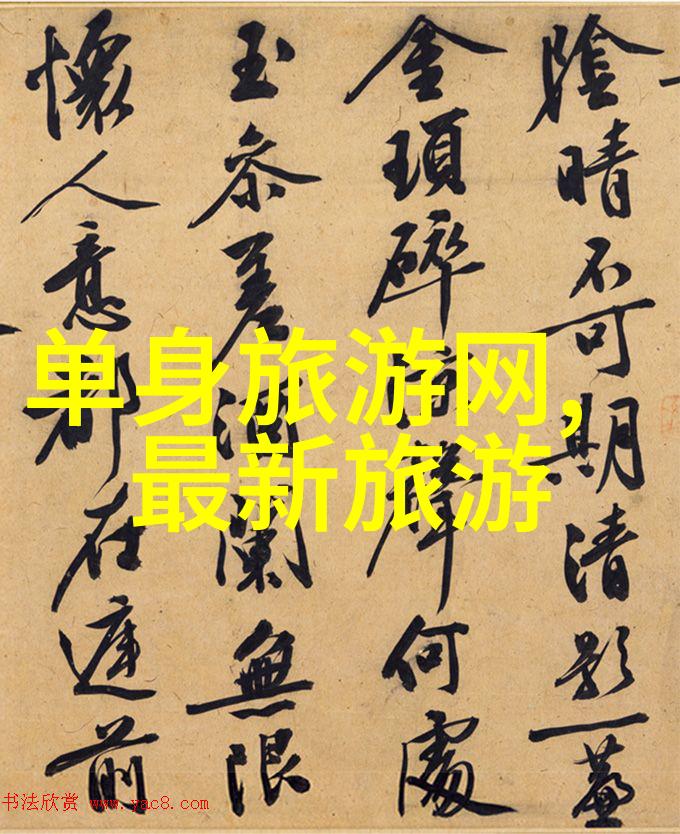 陰晴不可期清影一
金瑣碎聲何處
玉參差酒闌無限
懷人意都在前
单身旅游网,
最新旅游
书法欣赏 www.yac8.com